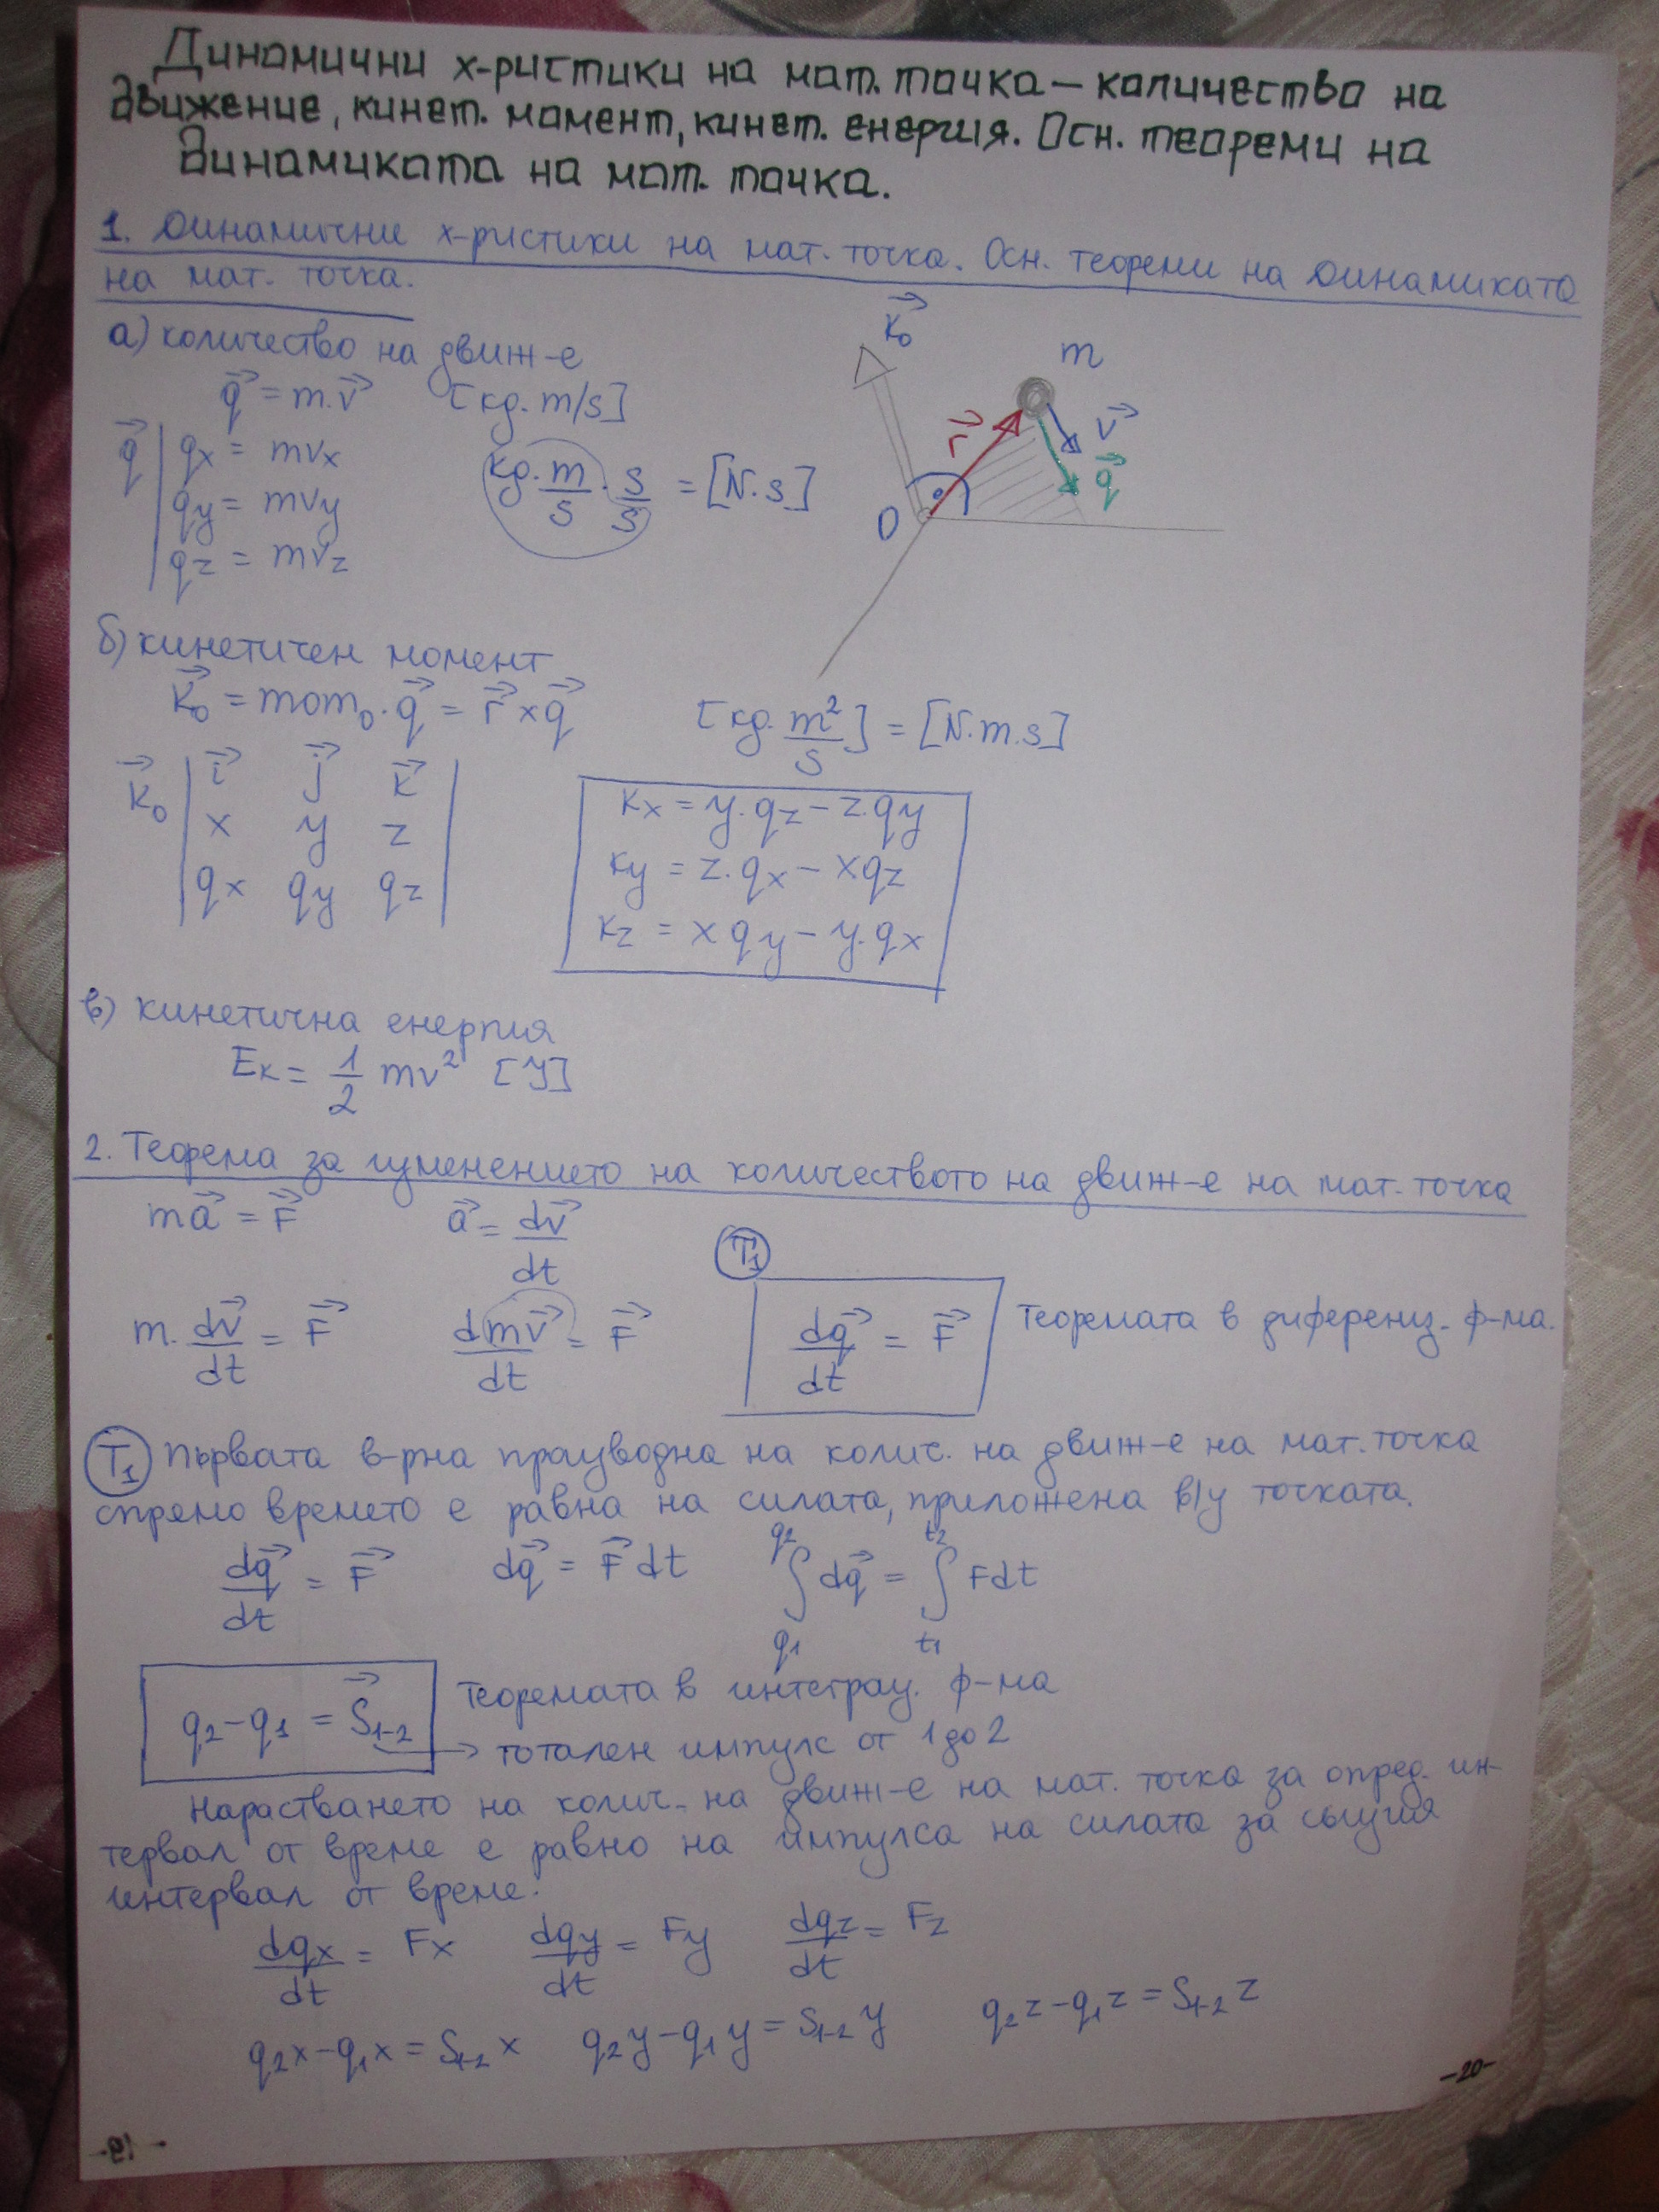 Динамични х-ристики на мат. точка – количество на
движение, кинет. момент, кинет. енергия. Осн. теореми на
динамиката на мат. точка.
1. Динамични х-ристики на мат. точка. Осн. теореми на динамиката
на мат. точка.
а) количество на движ-е
q⃗ = m.v⃗ [kg.m/s]
q⃗ | qx = mvx
qy = mvy
qz = mvz
kg.m/s . s/s = [N.s]
K⃗₀
m
r⃗
v⃗
q⃗
O
б) кинетичен момент
K⃗₀ = mom₀.q⃗ = r⃗ x q⃗ [kg. m²/s] = [N.m.s]
K⃗₀ | i⃗ j⃗ k⃗ |
x y z
qx qy qz
kx = y.qz – z.qy
ky = z.qx – xqz
kz = xqy – y.qx
в) кинетична енергия
Eк = 1/2 mv² [J]
2. Теорема за изменението на количеството на движ-е на мат. точка
ma⃗ = F⃗ a⃗ = dv⃗/dt
T₁
m. dv⃗/dt = F⃗ dmv⃗/dt = F⃗ dq⃗/dt = F⃗ Теоремата в диференц. ф-ма.
T₁ Първата в-рна производна на колич. на движ-е на мат. точка
спрямо времето е равна на силата, приложена в/у точката.
dq⃗/dt = F⃗ dq⃗ = F⃗dt ∫q1 q2 dq⃗ = ∫t1 t2 Fdt
q2 – q1 = S⃗1-2 Теоремата в интеграл. ф-ма
→ тотален импулс от 1 до 2
Нарастването на колич. на движ-е на мат. точка за опред. ин-
тервал от време е равно на импулса на силата за същия
интервал от време.
dqx/dt = Fx dqy/dt = Fy dqz/dt = Fz
q2x – q1x = S1-2x q2y – q1y = S1-2y q2z – q1z = S1-2z
-20-
-19-